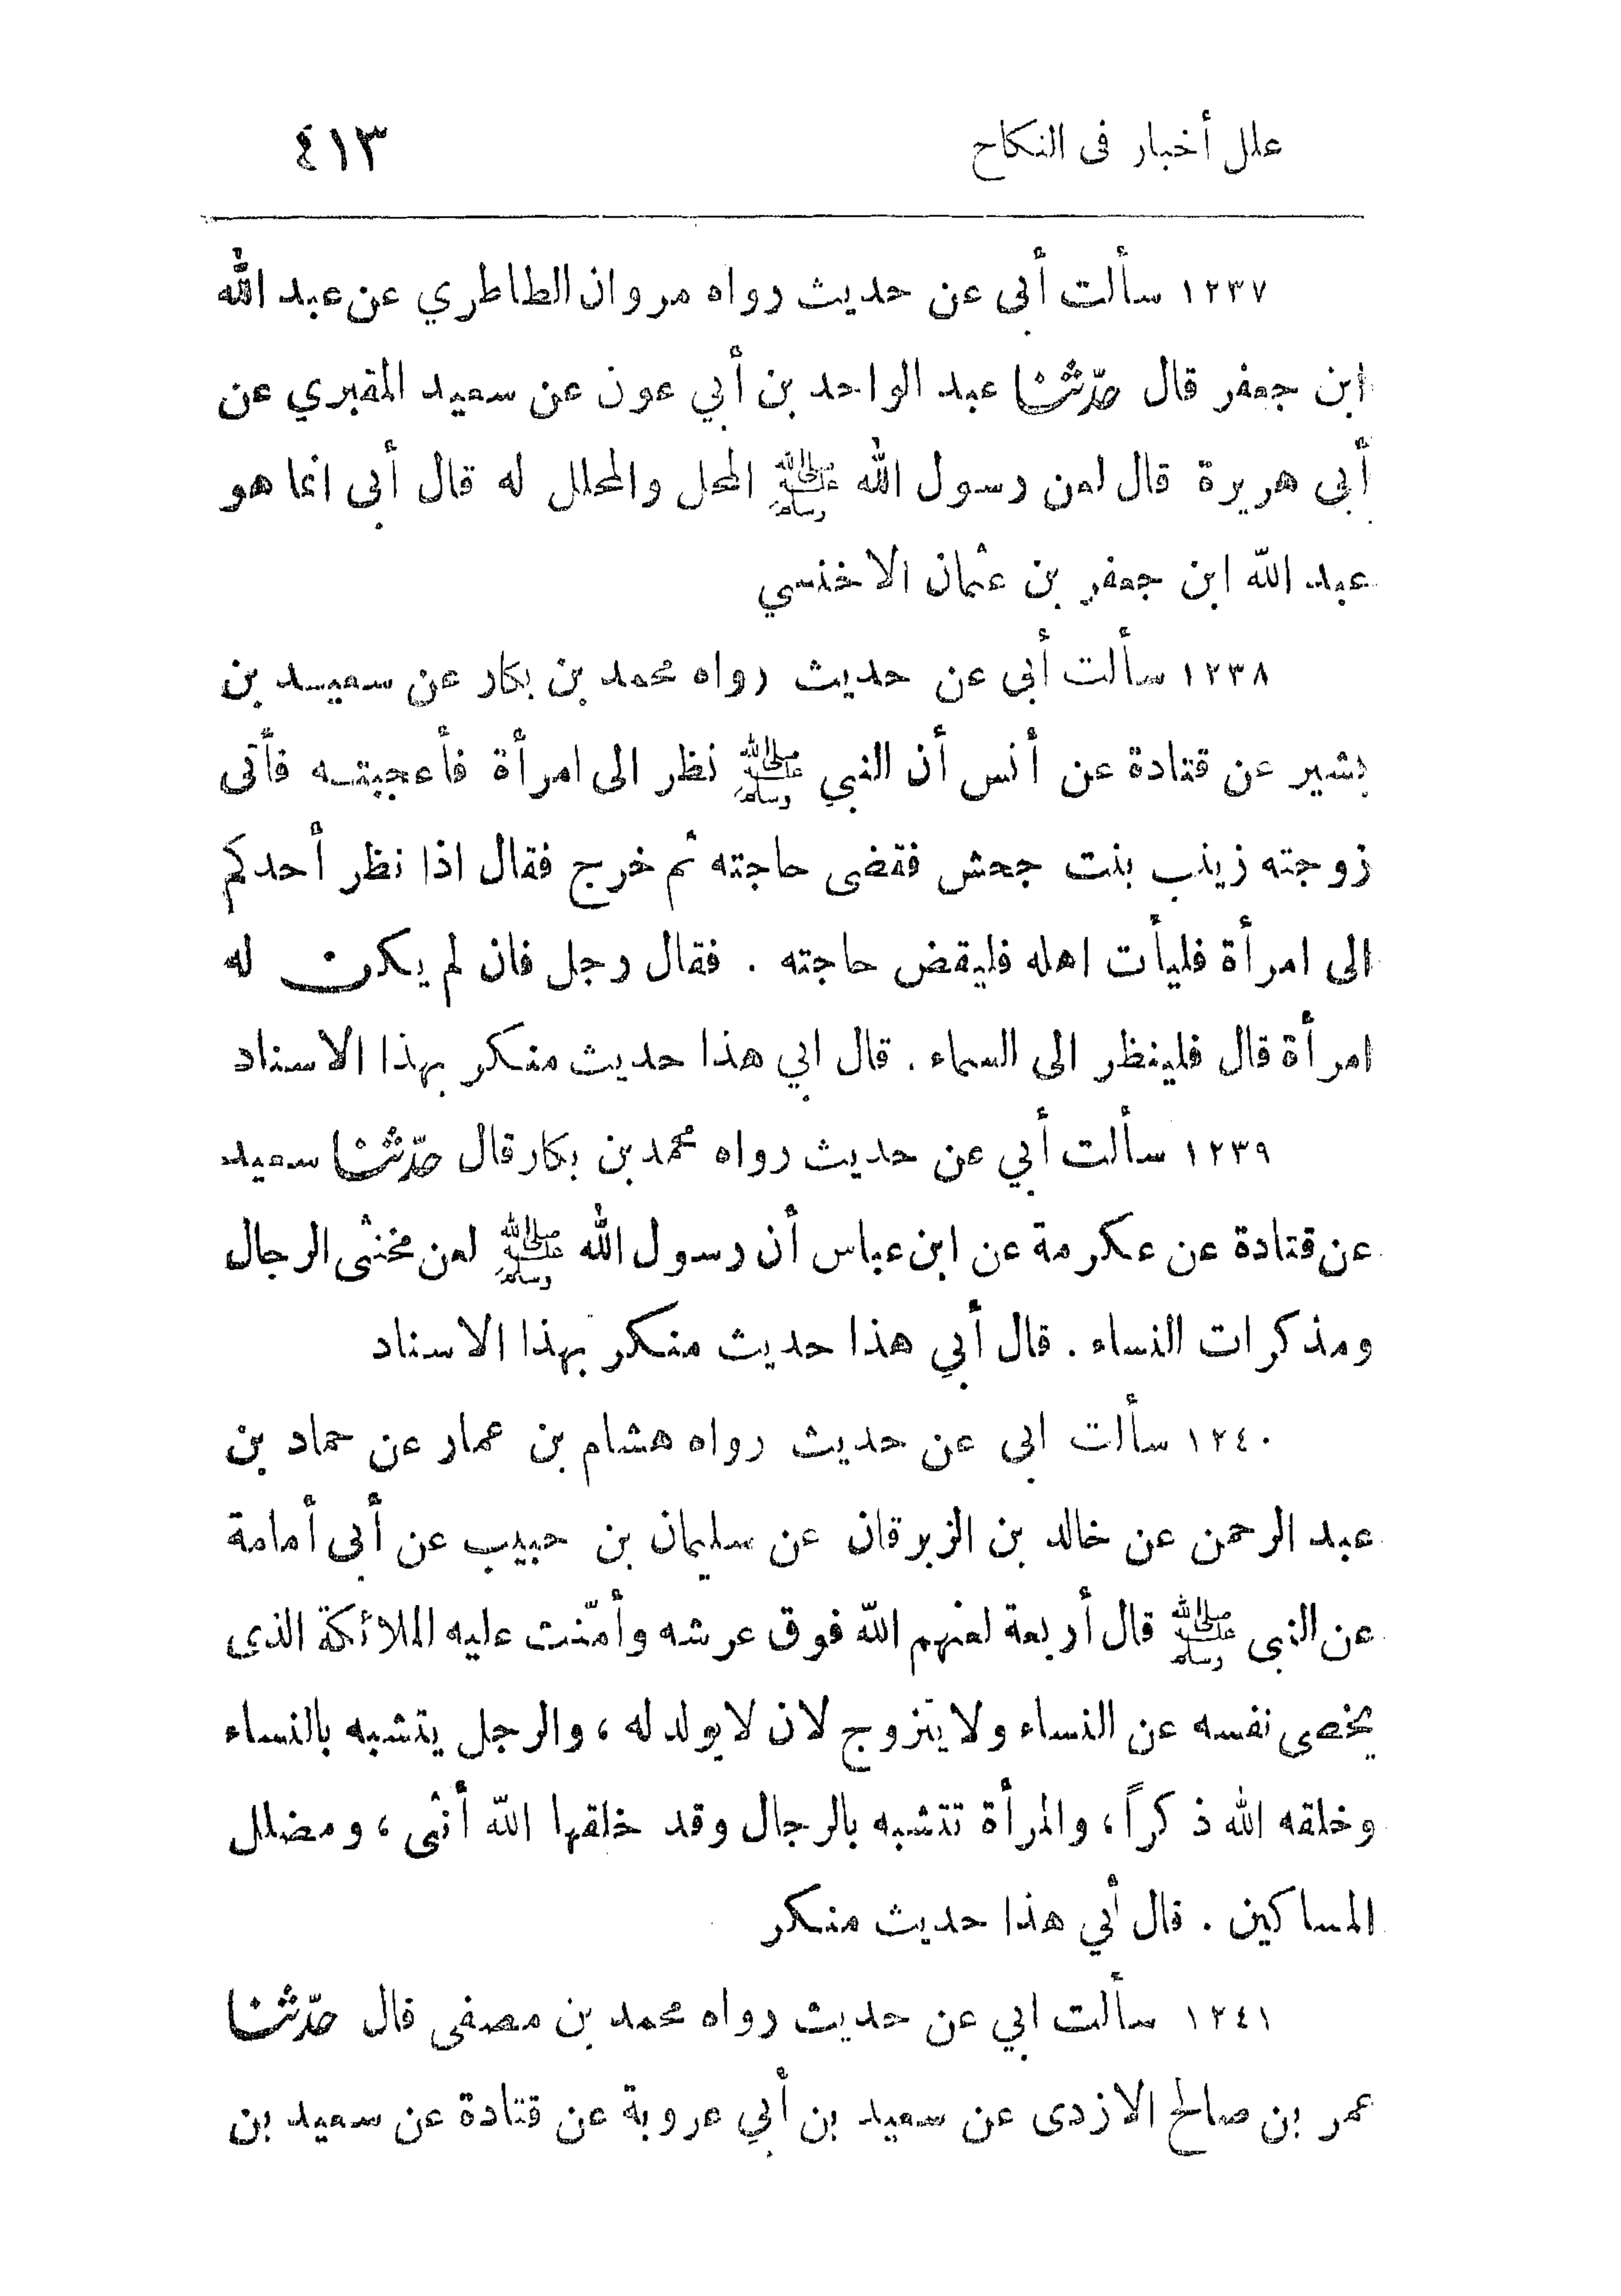 علل أخبار فى النكاح ٤١٣
١٢٣٧ سألت أبى عن حديث رواه مروان الطاطري عن عبد الله
ابن جعفر قال حدّثنا عبد الواحد بن أبي عون عن سعيد المقبري عن
أبى هريرة قال لعن رسول الله ﷺ المحل والمحلل له قال أبى انما هو
عبد الله ابن جعفر بن عثمان الاخنسي
١٢٣٨ سألت أبى عن حديث رواه محمد بن بكار عن سعيد بن
بشير عن قتادة عن أنس أن النبي ﷺ نظر الى امرأة فأعجبته فأتى
زوجته زينب بنت جحش فقضى حاجته ثم خرج فقال اذا نظر أحدكم
الى امرأة فليأت اهله فليقض حاجته . فقال رجل فان لم يكن له
امرأة قال فلينظر الى السماء . قال ابي هذا حديث منكر بهذا الاسناد
١٢٣٩ سألت أبي عن حديث رواه محمد بن بكار قال حدّثنا سعيد
عن قتادة عن عكرمة عن ابن عباس أن رسول الله ﷺ لعن مخنثى الرجال
ومذكرات النساء . قال أبي هذا حديث منكر بهذا الاسناد
١٢٤٠ سألت ابى عن حديث رواه هشام بن عمار عن حماد بن
عبد الرحمن عن خالد بن الزبرقان عن سليمان بن حبيب عن أبى أمامة
عن النبى ﷺ قال أربعة لعنهم الله فوق عرشه وأمّنت عليه الملائكة الذى
يخصى نفسه عن النساء ولا يتزوج لان لا يولد له ، والرجل يتشبه بالنساء
وخلقه الله ذكراً ، والمرأة تتشبه بالرجال وقد خلقها الله أنثى ، ومضلل
المساكين . قال أبي هذا حديث منكر
١٢٤١ سألت ابي عن حديث رواه محمد بن مصفى قال حدّثنا
عمر بن صالح الازدى عن سعيد بن أبي عروبة عن قتادة عن سعيد بن